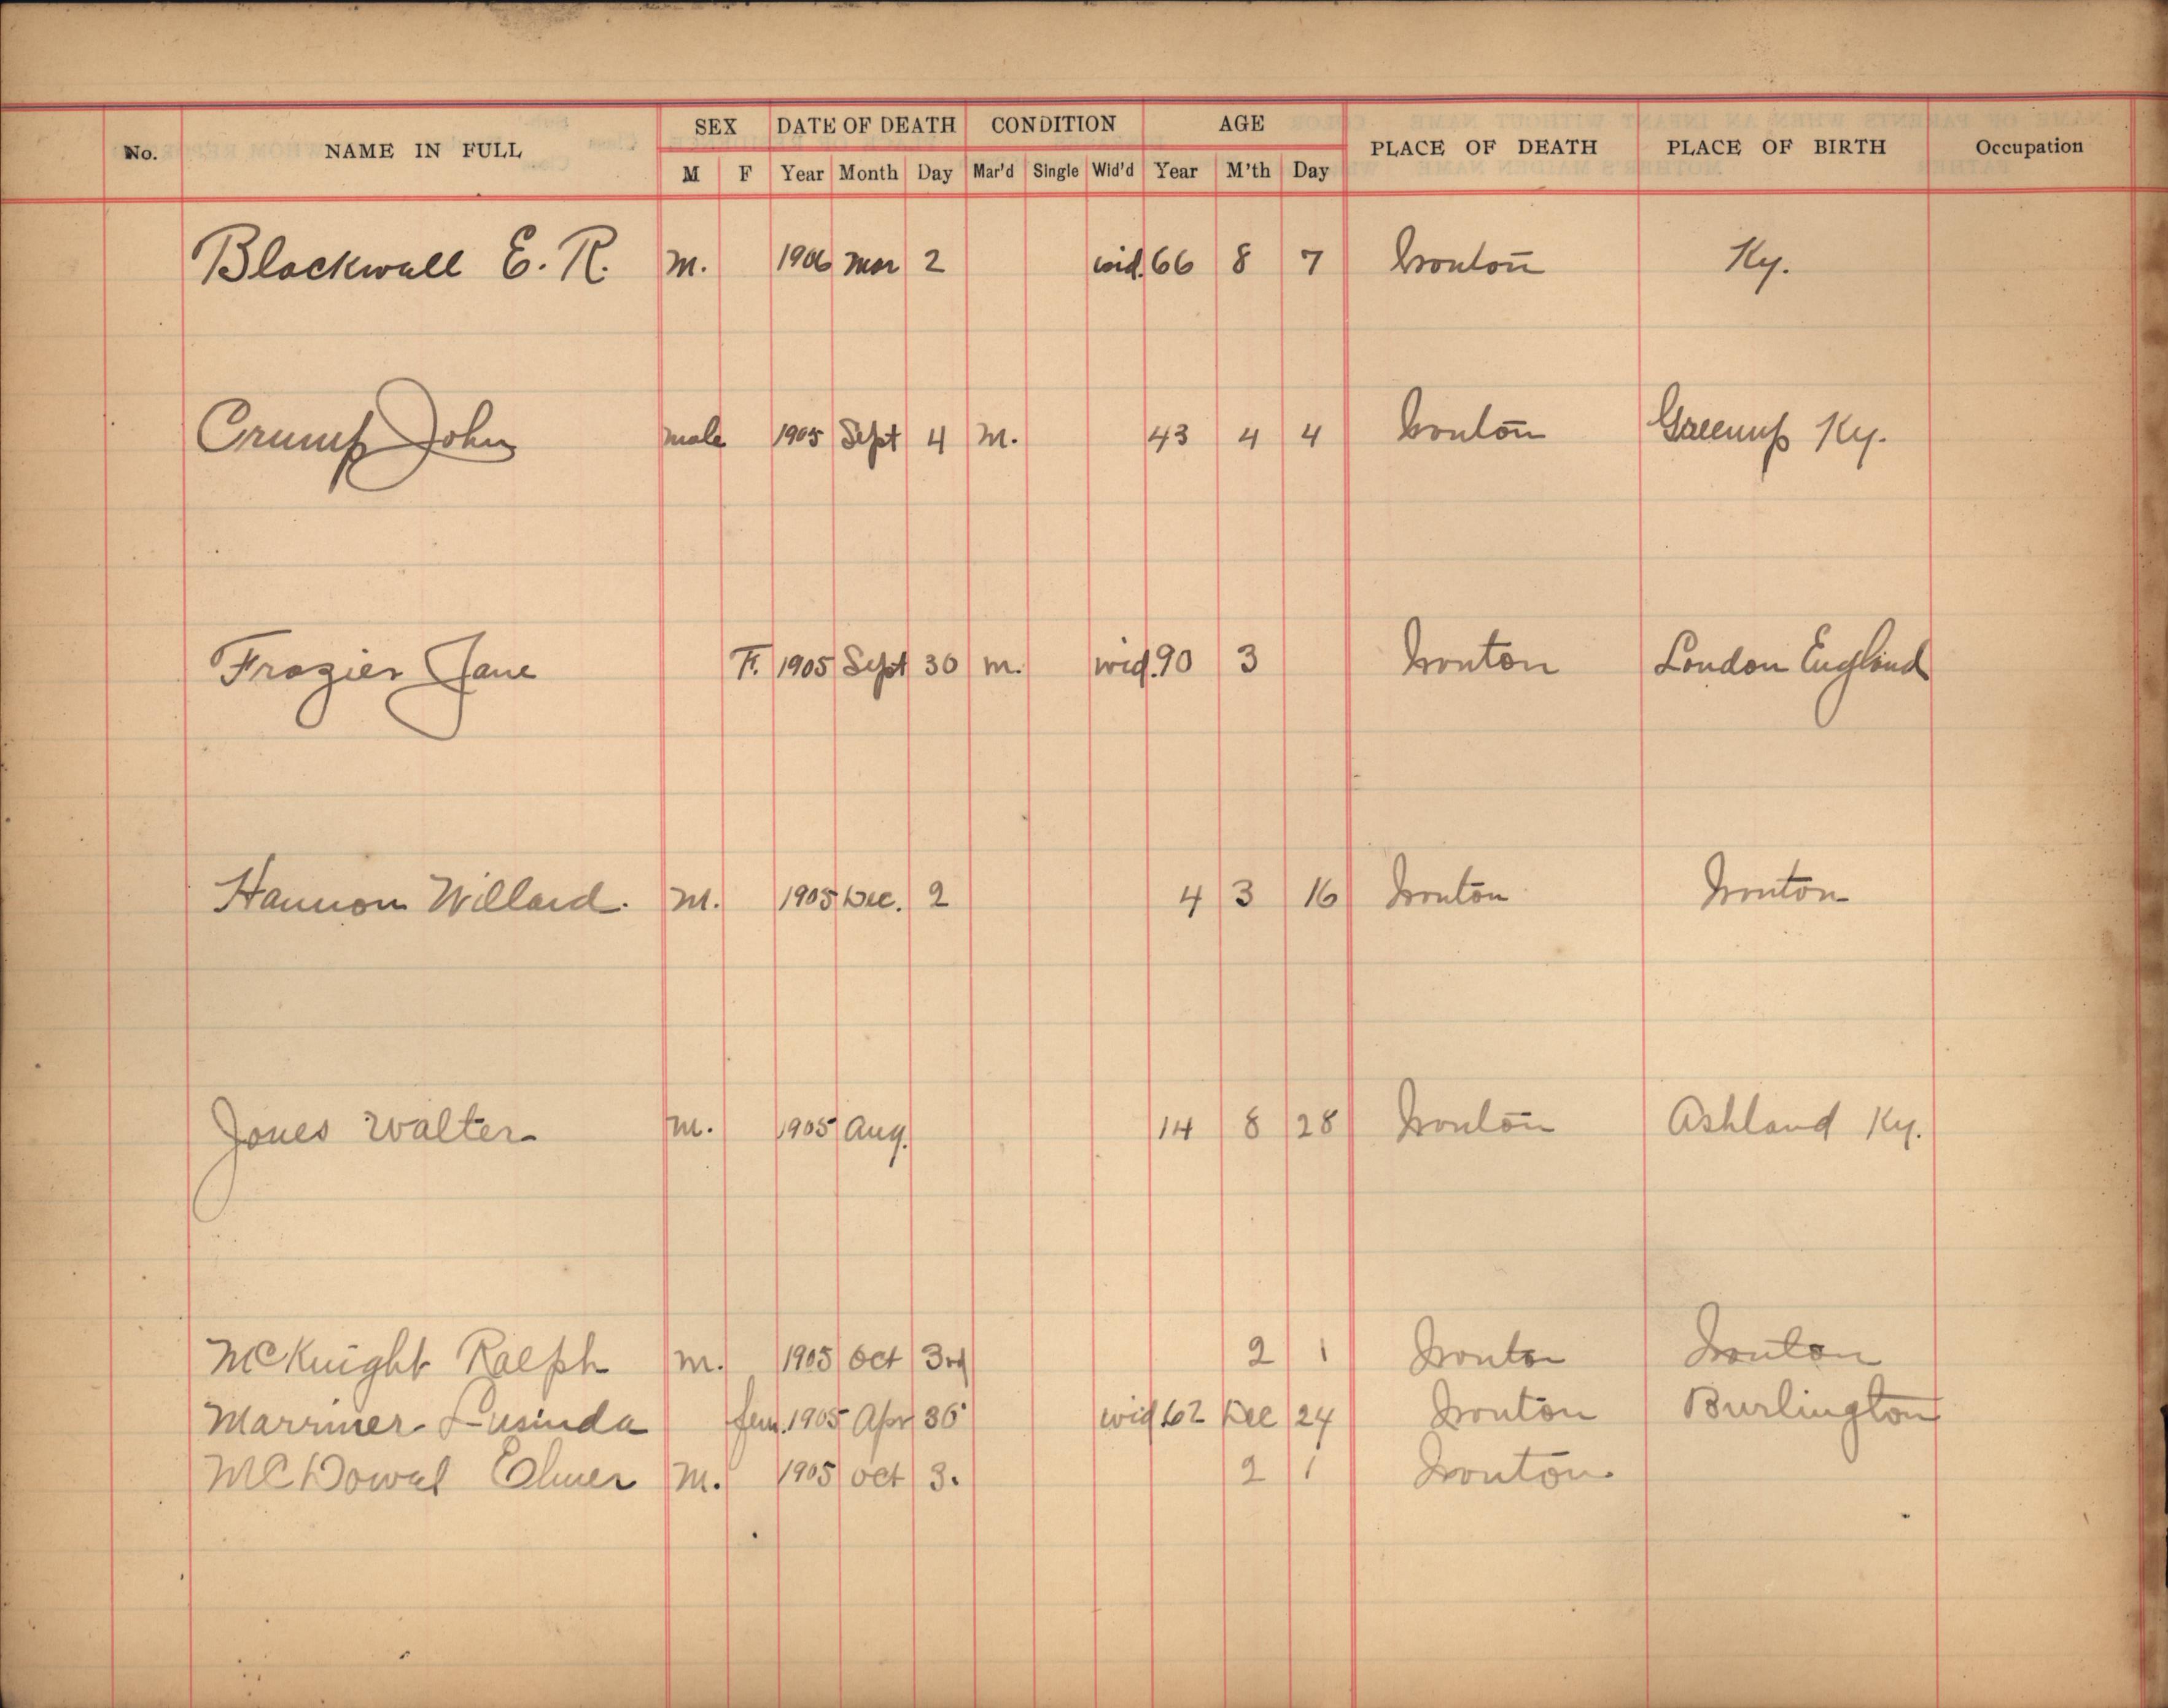 SEX DATE OF DEATH CONDITION AGE
No. NAME IN FULL PLACE OF DEATH PLACE OF BIRTH Occupation
M F Year Month Day Mar'd Single Wid'd Year M'th Day
Blackwall E. R. M. 1906 Mar 2 wid. 66 8 7 Ironton Ky.
Crump John male 1905 Sept 4 M. 43 4 4 Ironton Greenup Ky.
Frazier Jane F. 1905 Sept 30 M. wid. 90 3 Ironton London England
Hannon Willard. M. 1905 Dec. 2 4 3 16 Ironton Ironton
Jones Walter M. 1905 Aug. 14 8 28 Ironton Ashland Ky.
McKnight Ralph M. 1905 Oct 3rd 2 1 Ironton Ironton
Marriner Lusinda fem. 1905 Apr wid 62 Dec 24 Ironton Burlington
McDowel Elmer M. 1905 Oct 3. 2 1 Ironton.